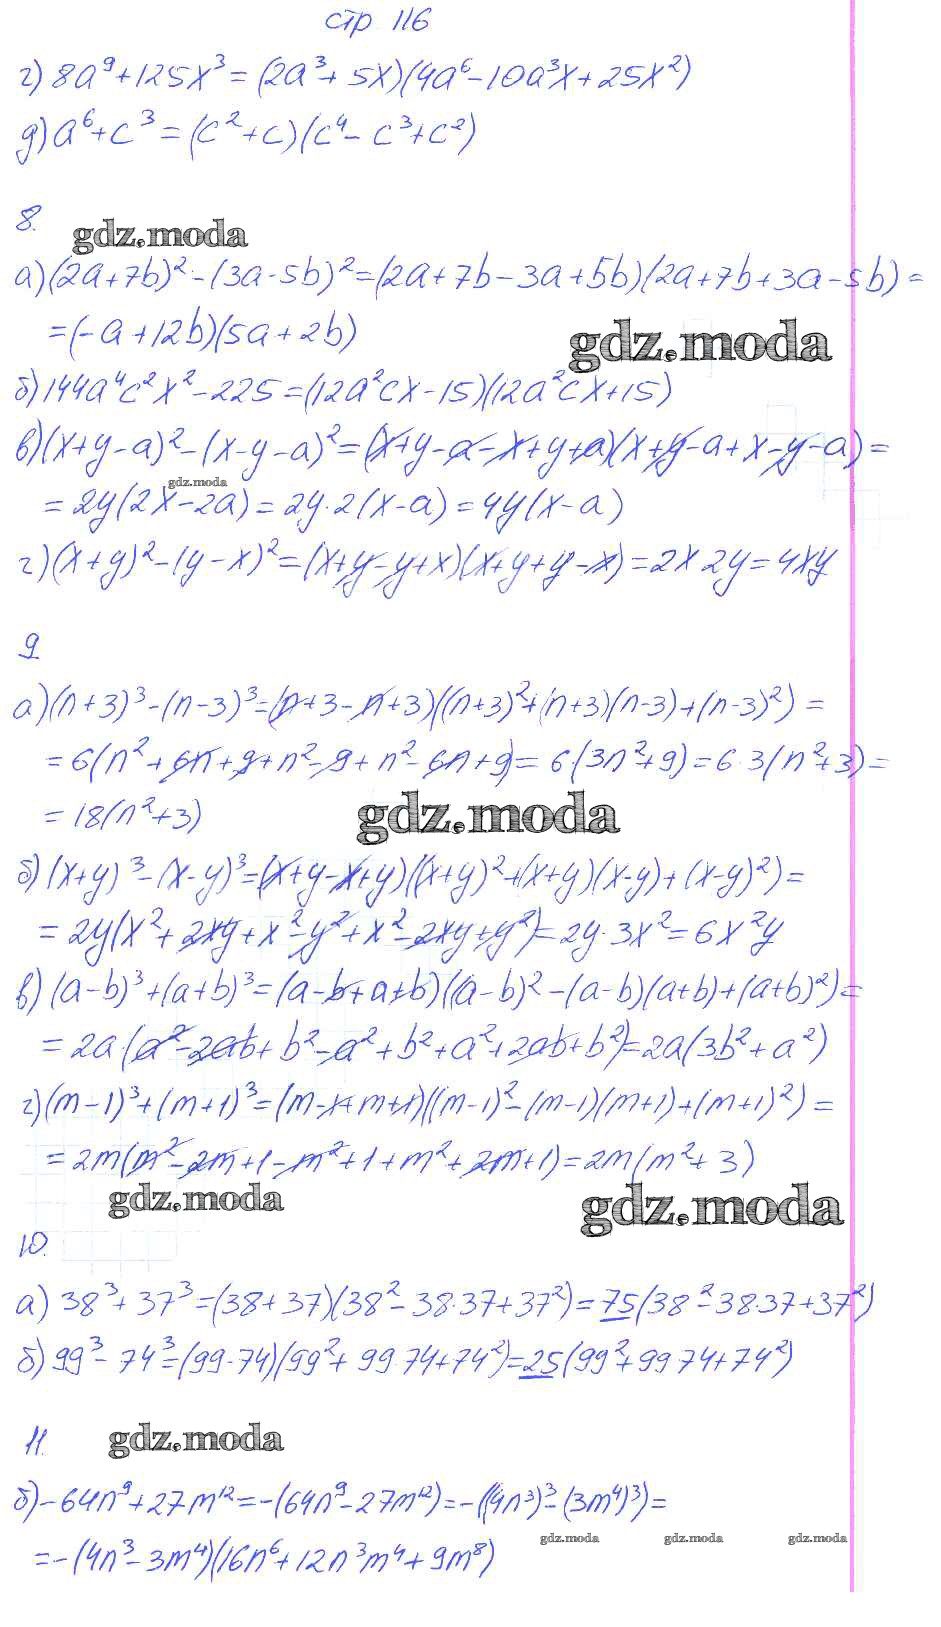 стр 116
г) 8a⁹+125x³=(2a³+5x)(4a⁶-10a³x+25x²)
д) a⁶+c³=(c²+c)(c⁴-c³+c²)
8.
gdz.moda
а) (2a+7b)²-(3a-5b)²=(2a+7b-3a+5b)(2a+7b+3a-5b)=
=(-a+12b)(5a+2b)
gdz.moda
б) 144a⁴c²x²-225=(12a²cx-15)(12a²cx+15)
в) (x+y-a)²-(x-y-a)²=(x+y-a-x+y+a)(x+y-a+x-y-a)=
gdz.moda
=2y(2x-2a)=2y·2(x-a)=4y(x-a)
г) (x+y)²-(y-x)²=(x+y-y+x)(x+y+y-x)=2x·2y=4xy
9
а) (n+3)³-(n-3)³=(n+3-n+3)((n+3)²+(n+3)(n-3)+(n-3)²)=
=6(n²+6n+9+n²-9+n²-6n+9)=6·(3n²+9)=6·3(n²+3)=
=18(n²+3)
gdz.moda
б) (x+y)³-(x-y)³=(x+y-x+y)((x+y)²+(x+y)(x-y)+(x-y)²)=
=2y(x²+2xy+x²-y²+x²-2xy+y²)=2y·3x²=6x²y
в) (a-b)³+(a+b)³=(a-b+a+b)((a-b)²-(a-b)(a+b)+(a+b)²)=
=2a·(a²-2ab+b²-a²+b²+a²+2ab+b²)=2a(3b²+a²)
г) (m-1)³+(m+1)³=(m-1+m+1)((m-1)²-(m-1)(m+1)+(m+1)²)=
=2m(m²-2m+1-m²+1+m²+2m+1)=2m(m²+3)
gdz.moda
gdz.moda
10.
а) 38³+37³=(38+37)(38²-38·37+37²)=75(38²-38·37+37²)
б) 99³-74³=(99-74)(99²+99·74+74²)=25(99²+99·74+74²)
11.
gdz.moda
б) -64n⁹+27m¹²=-(64n⁹-27m¹²)=-((4n³)³-(3m⁴)³)=
gdz.moda gdz.moda gdz.moda
=-(4n³-3m⁴)(16n⁶+12n³m⁴+9m⁸)